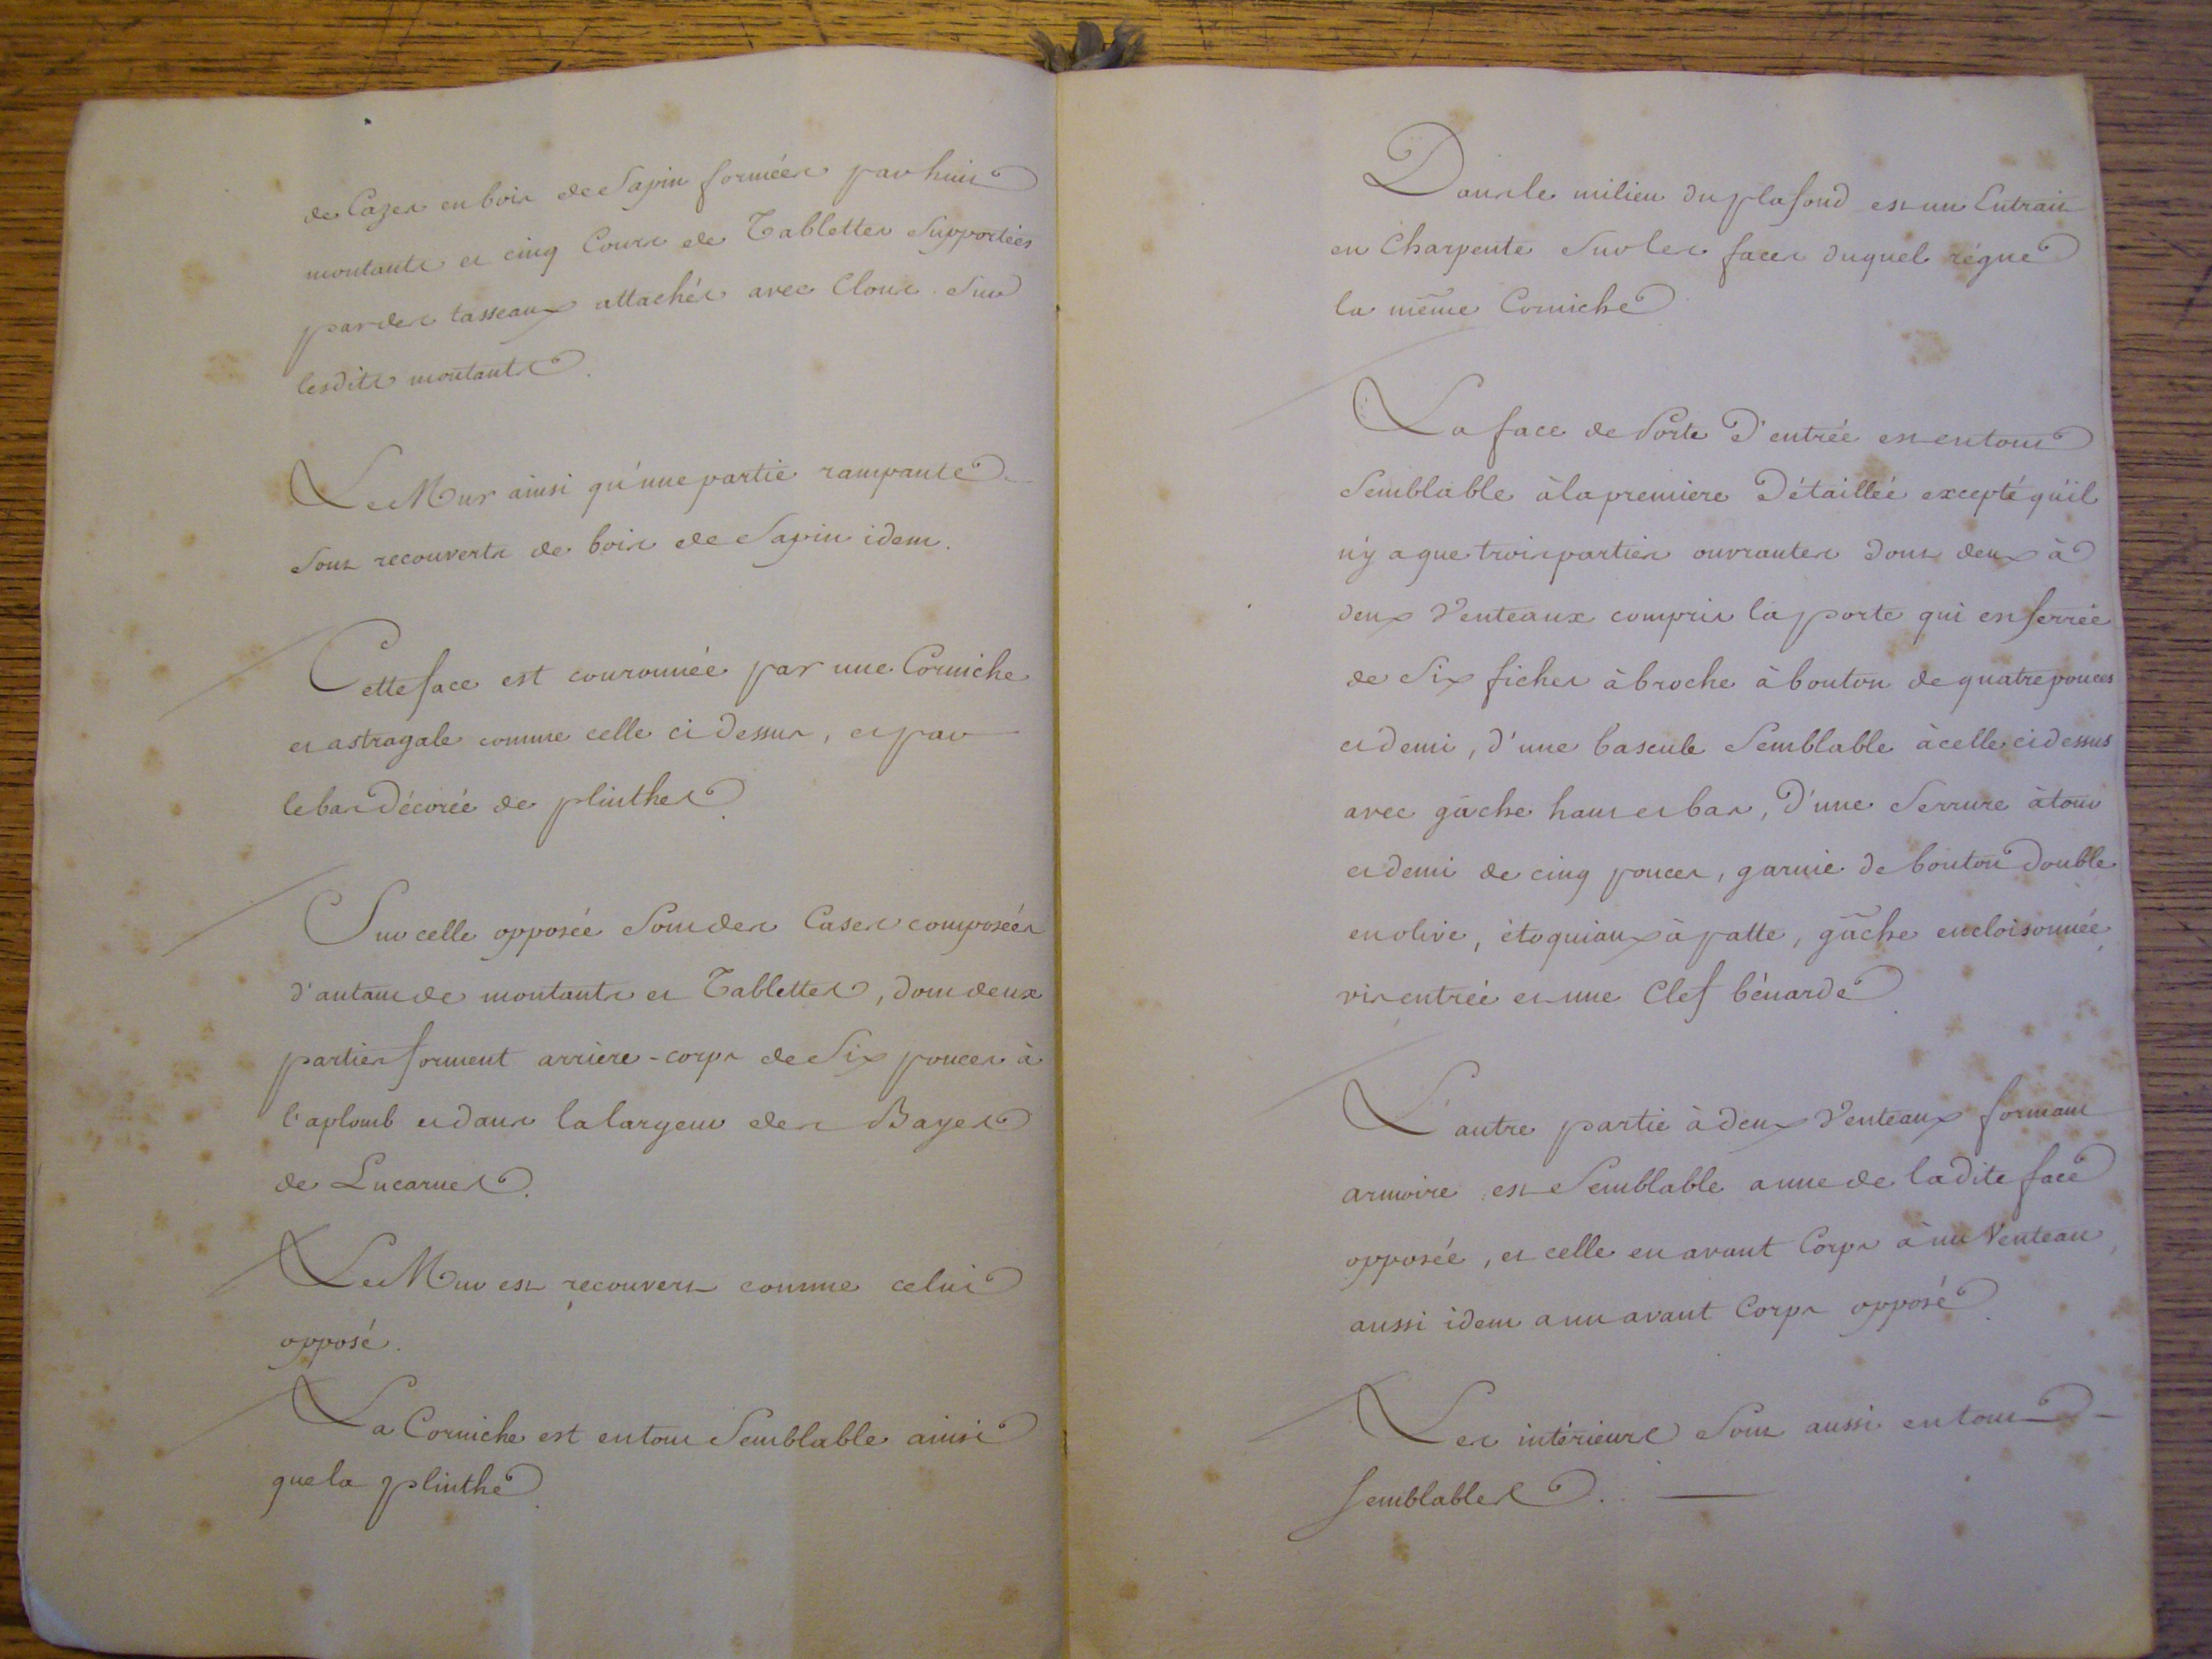 de Cazes en bois de Sapin formées par huit
montants et cinq Cours de Tablettes Supportées
par des tasseaux attachés avec Clous Sur
lesdits montants.
Le Mur ainsi qu'une partie rampante
Sont recouverts de bois de Sapin idem.
Cette face est couronnée par une Corniche
et astragale comme celle ci dessus, et par
le bas décorée de plinthes.
Sur celle opposée Sont des Cases composées
d'autant de montants et Tablettes, dont deux
parties forment arrière-corps de Six pouces à
l'aplomb et dans la largeur des Bayes
de Lucarnes.
Le Mur est recouvert comme celui
opposé.
La Corniche est en tout Semblable ainsi
que la plinthe.
Dans le milieu du plafond est un Entrait
en Charpente Sur les faces duquel régne
la même Corniche
La face de Porte d'entrée est en tout
Semblable à la premiere détaillée excepté qu'il
n'y a que trois parties ouvrantes dont deux à
deux Venteaux compris la porte qui est ferrée
de Six fiches à broche à bouton de quatre pouces
et demi, d'une bascule Semblable à celle ci dessus
avec gâche haut et bas, d'une Serrure à tour
et demi de cinq pouces, garnie de bouton double
en olive, étoquiaux à patte, gâche encloisonnée,
vis entrée et une Clef bénarde.
L'autre partie à deux Venteaux formant
armoire est Semblable a une de ladite face
opposée, et celle en avant Corps à un Venteau,
aussi idem a un avant Corps opposé.
Les intérieurs Sont aussi en tout
Semblables.